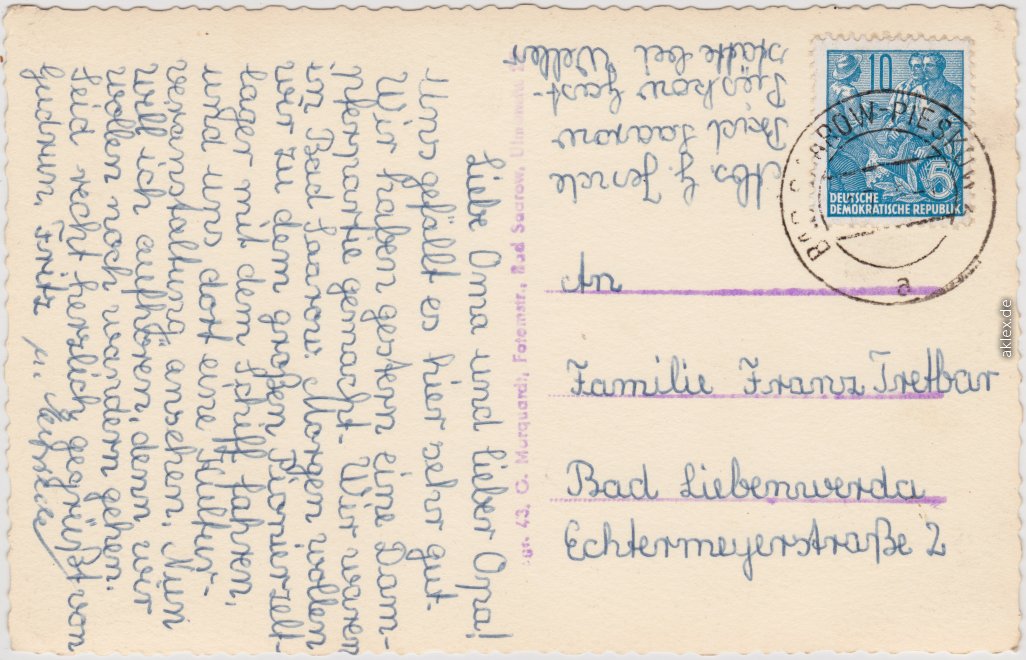 Liebe Oma und lieber Opa!
Uns gefällt es hier sehr gut.
Wir haben gestern eine Dam-
pferpartie gemacht. Wir waren
in Bad Saarow. Morgen wollen
wir zu dem großen Pionierzelt-
lager mit dem Schiff fahren,
und uns dort eine „Kultur-
veranstaltung“ ansehen. Nun
will ich aufhören, denn wir
wollen noch wandern gehen.
Seid recht herzlich gegrüßt von
Gudrun, Fritz u.
Abs. G.
Bad Saarow
Pieskow Gast-
stätte bei
10
5
DEUTSCHE
DEMOKRATISCHE REPUBLIK
BAD SAARROW-PIESKOW
a
43. O. Marquardt, Fotomstr., Bad Saarow,
An
Familie Franz Tretbar
Bad Liebenwerda
Echtermeyerstraße 2
aklex.de